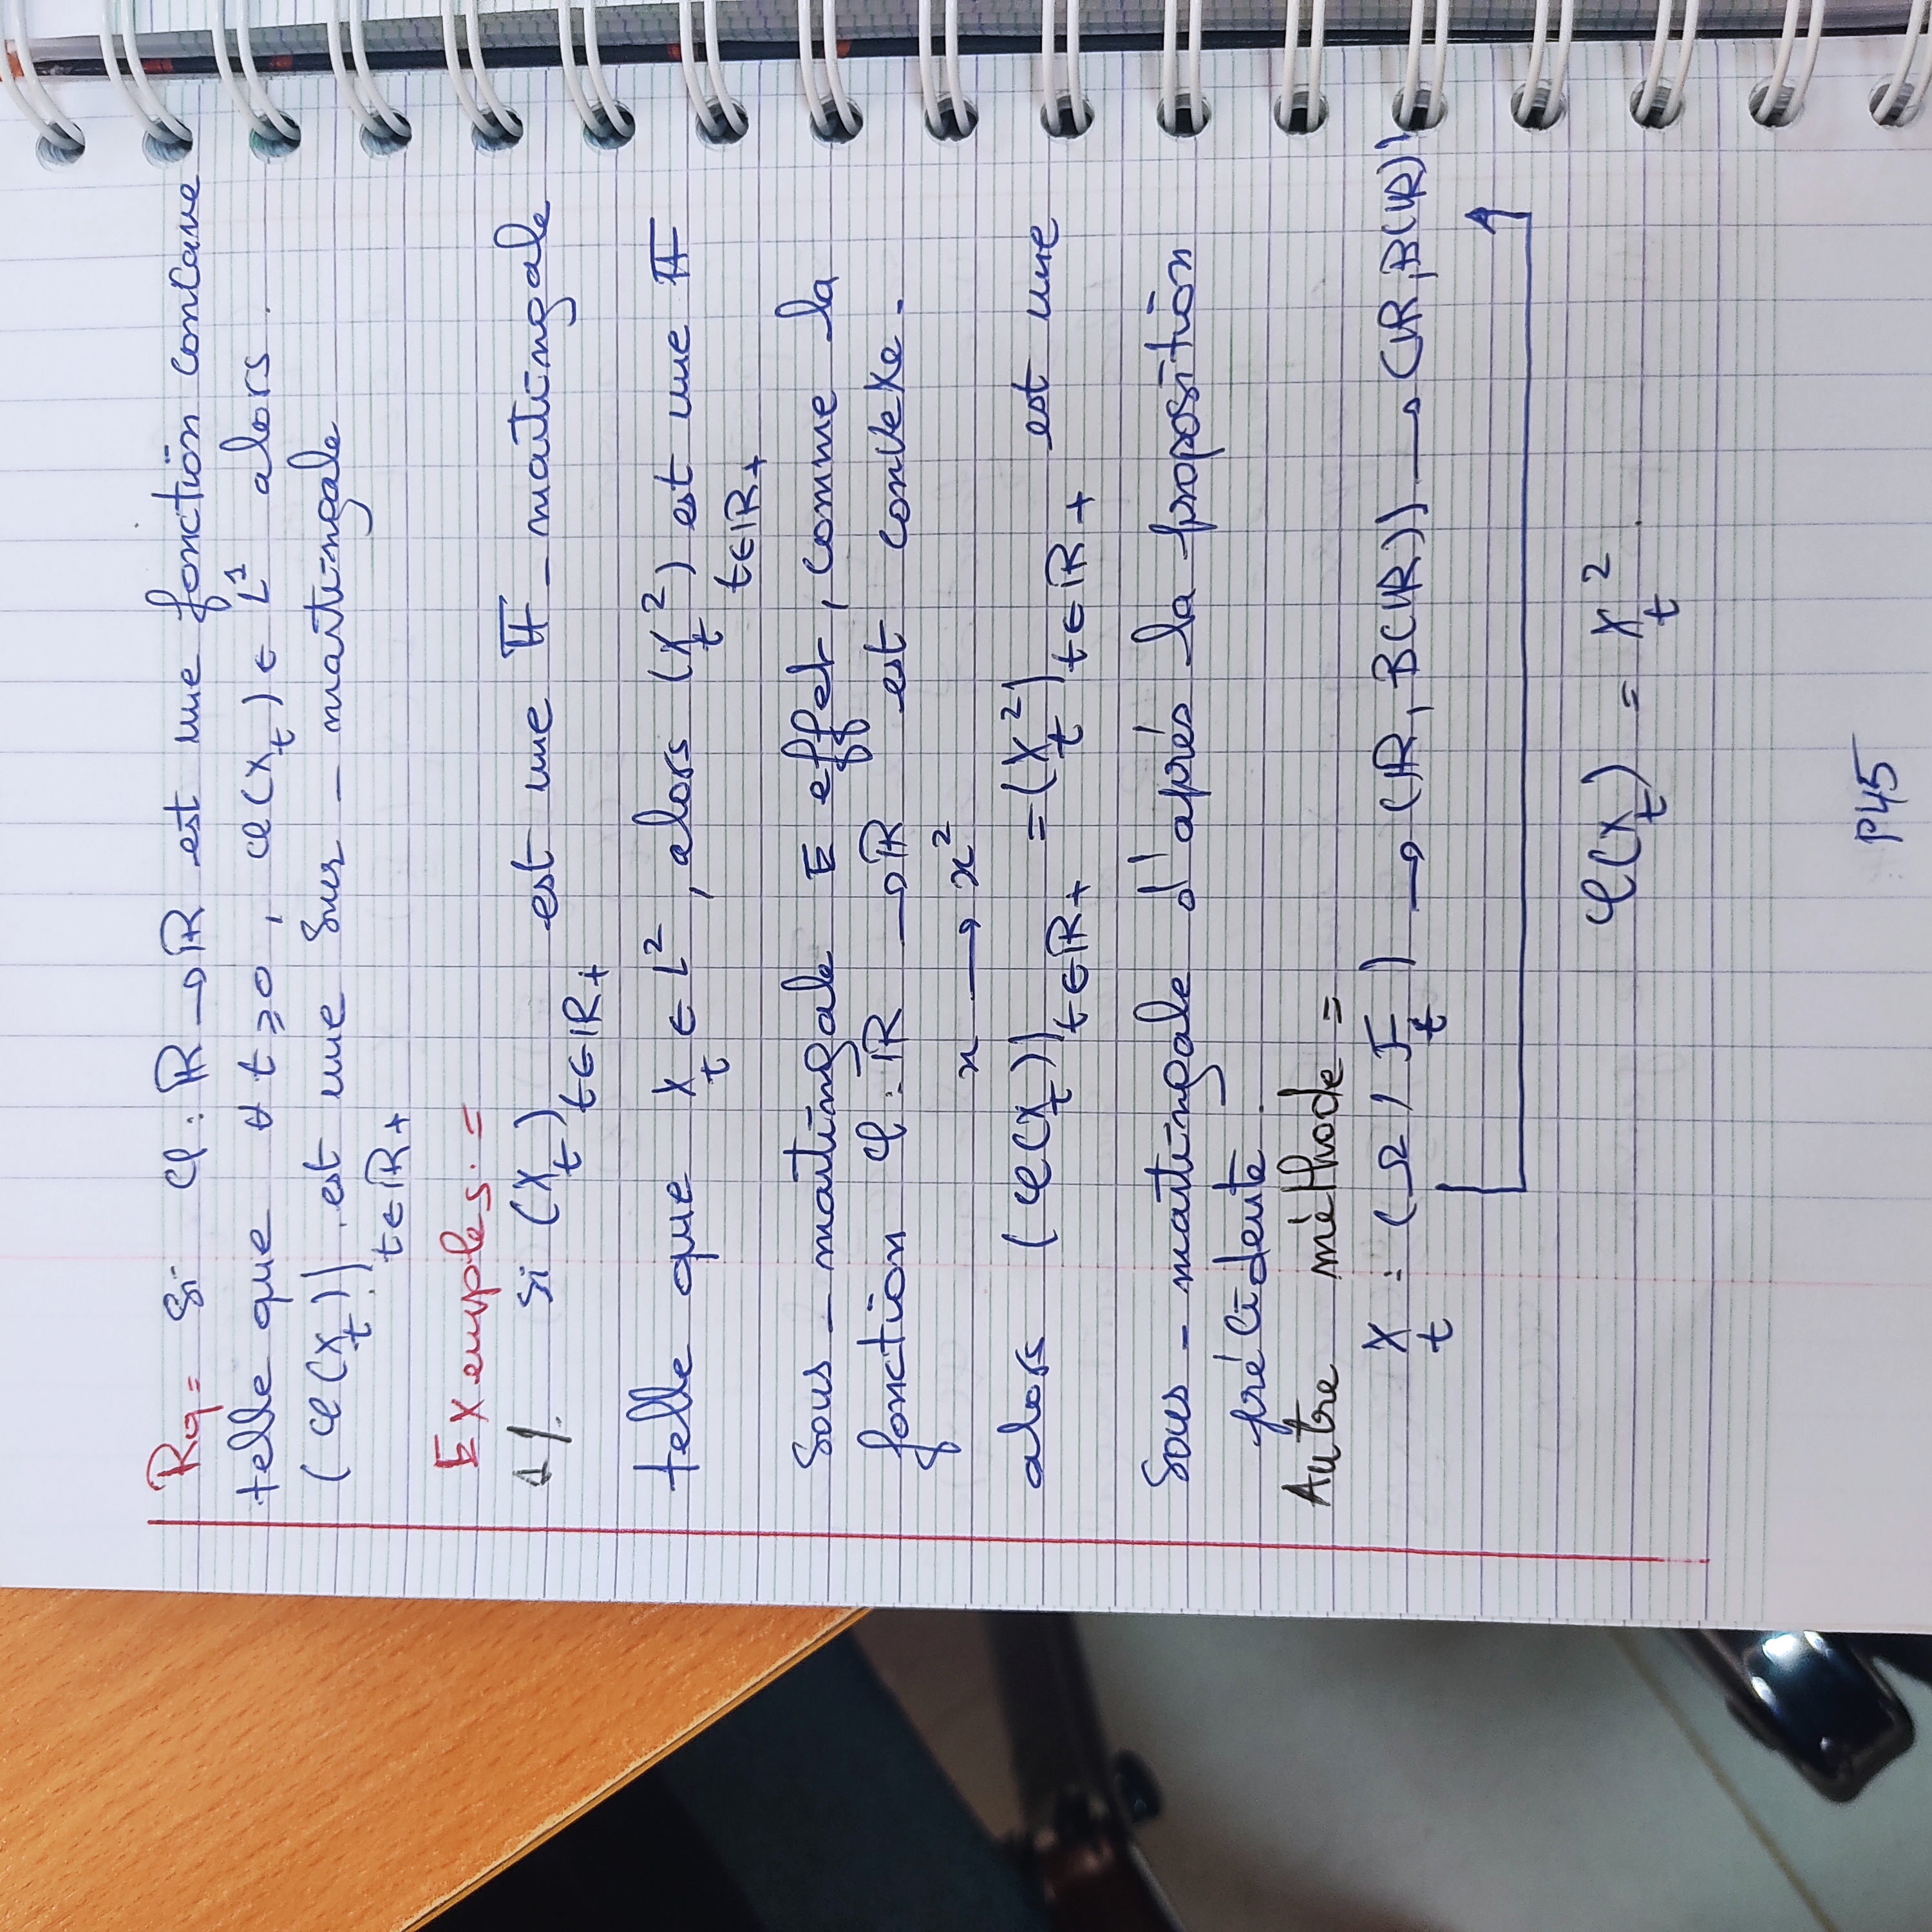 Rq= Si φ: ℝ → ℝ est une fonction concave
telle que ∀ t ≥ 0, φ(X_t) ∈ L¹ alors.
(φ(X_t))_{t∈ℝ+} est une Sur - martingale
Exemples. =
1/. Si (X_t)_{t∈ℝ+} est une 𝔽 - martingale
telle que X_t ∈ L², alors (X_t²)_{t∈ℝ+} est une 𝔽
Sous - martingale E effet, comme la
fonction φ: ℝ → ℝ est convexe.
x → x²
alors (φ(X_t))_{t∈ℝ+} = (X_t²)_{t∈ℝ+} est une
Sous - martingale d'aprés la proposition
précidente.
Autre méthode =
X_t : (Ω, F_t) → (ℝ, B(ℝ)) → (ℝ, B(ℝ))
φ(X_t) = X_t².
P45